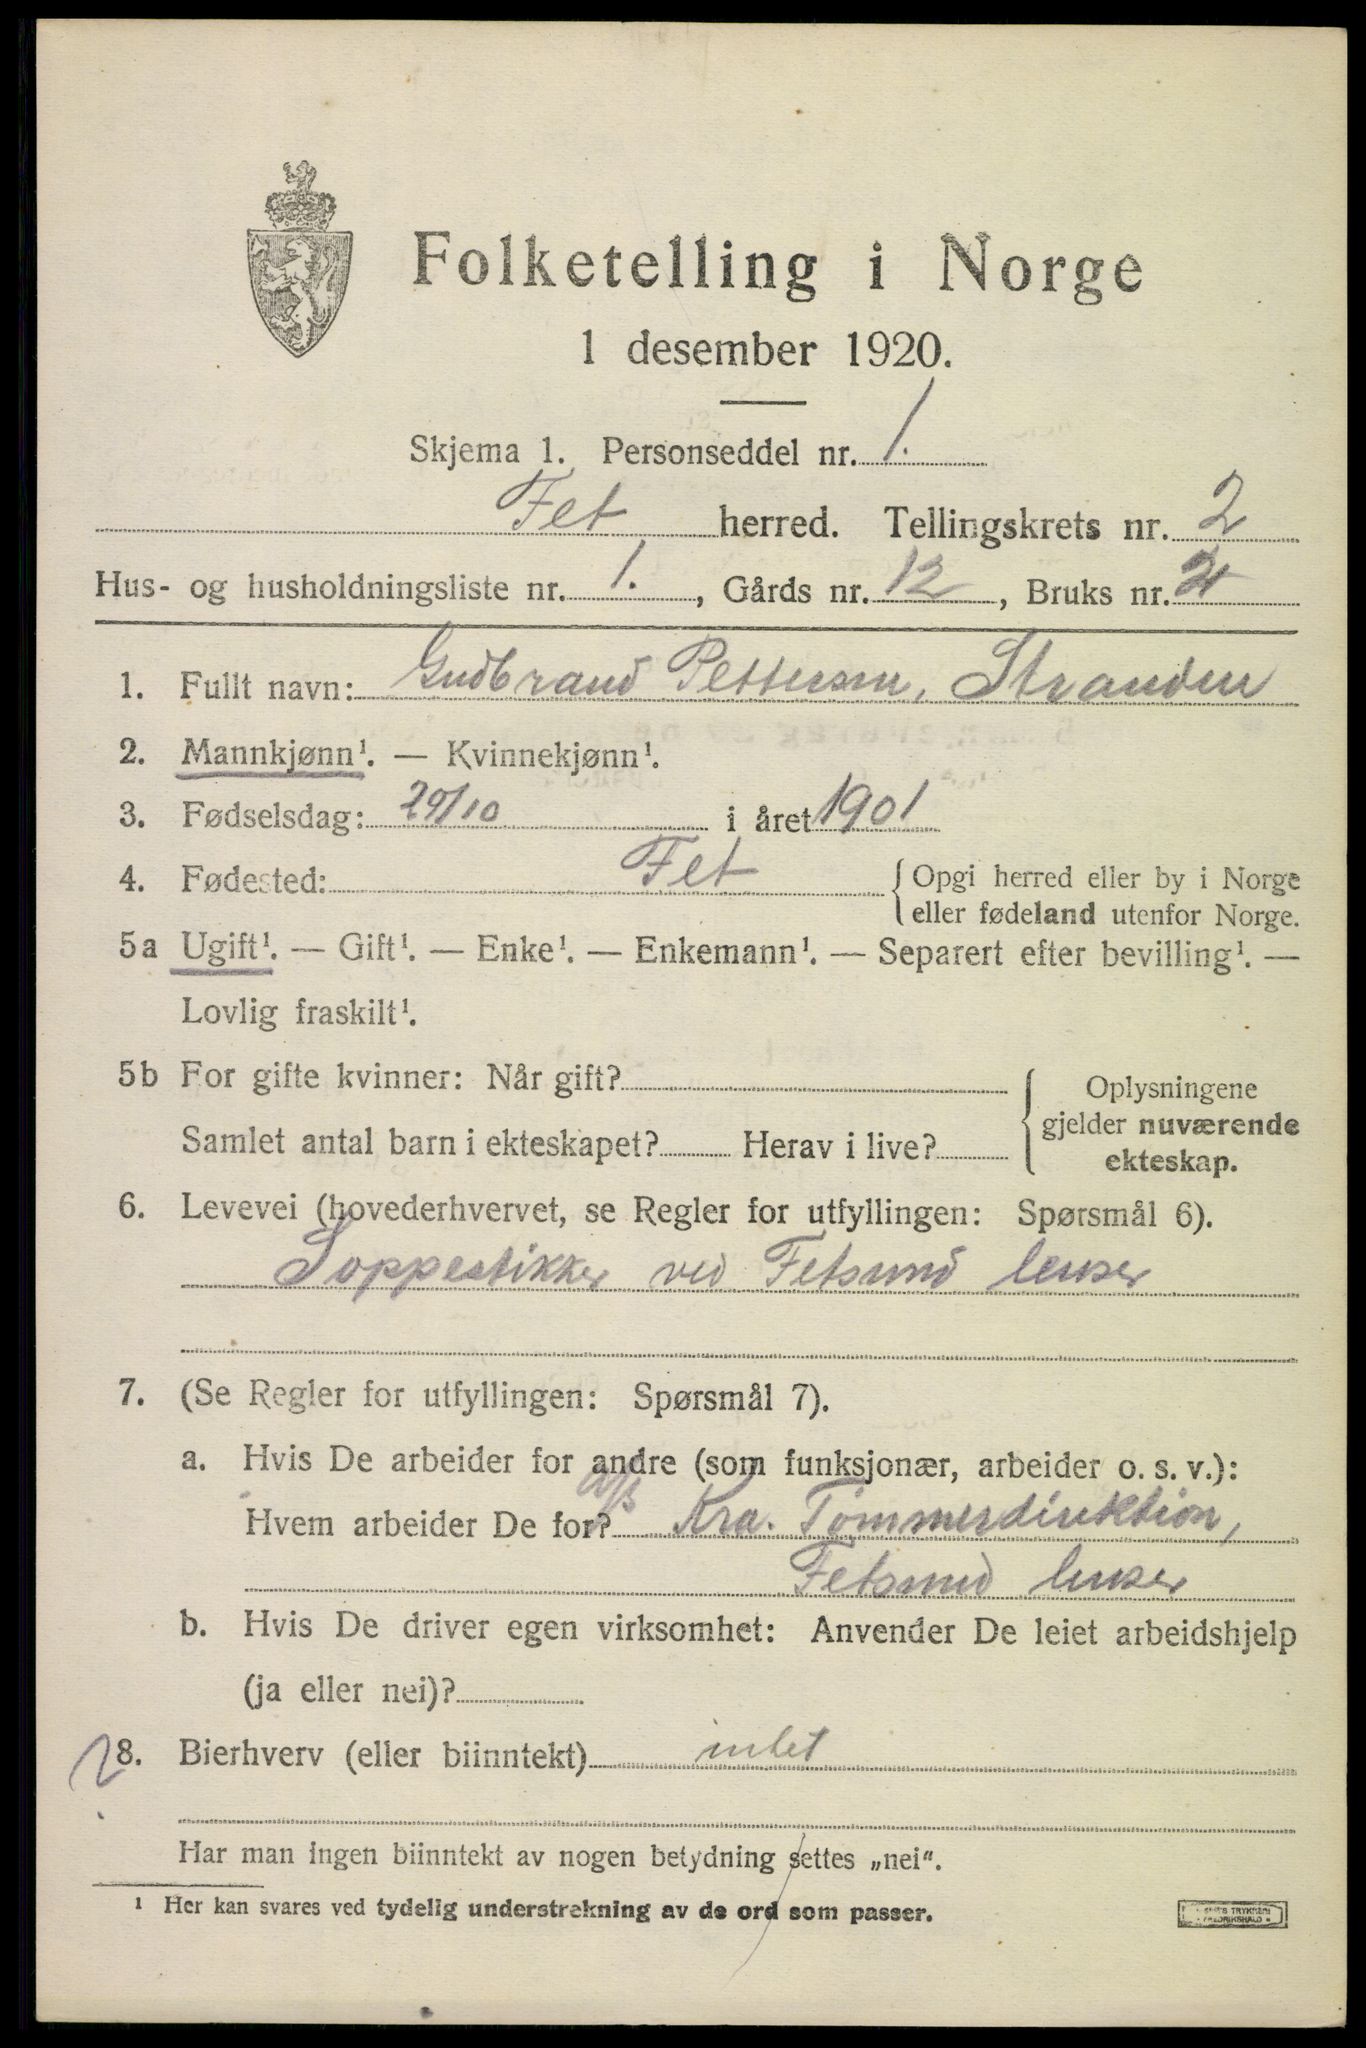 Folketelling i Norge
1 desember 1920.
Skjema 1. Personseddel nr. 1.
Fet herred. Tellingskrets nr. 2
Hus- og husholdningsliste nr. 1., Gårds nr. 12, Bruks nr.
1. Fullt navn: Gudbrand Pettersen, Stranden
2. Mannkjønn¹. — Kvinnekjønn¹.
3. Fødselsdag: 29/10 i året 1901
4. Fødested: Fet { Opgi herred eller by i Norge
eller fødeland utenfor Norge.
5a Ugift¹. — Gift¹. — Enke¹. — Enkemann¹. — Separert efter bevilling¹. —
Lovlig fraskilt¹.
5b For gifte kvinner: Når gift?
Samlet antal barn i ekteskapet? Herav i live?
{ Oplysningene
gjelder nuværende
ekteskap.
6. Levevei (hovederhvervet, se Regler for utfyllingen: Spørsmål 6).
Soppestikker ved Fetsund lenser
7. (Se Regler for utfyllingen: Spørsmål 7).
a. Hvis De arbeider for andre (som funksjonær, arbeider o. s. v.):
Hvem arbeider De for? Kra. Tømmerdirektion,
Fetsund lenser
b. Hvis De driver egen virksomhet: Anvender De leiet arbeidshjelp
(ja eller nei)?
8. Bierhverv (eller biinntekt) intet
Har man ingen biinntekt av nogen betydning settes „nei“.
¹ Her kan svares ved tydelig understrekning av de ord som passer.